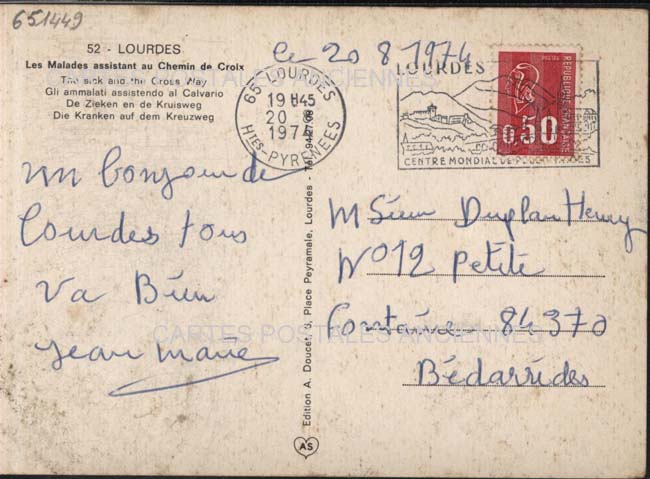 651449
52 - LOURDES
Les Malades assistant au Chemin de Croix
The sick and the Cross Way
Gli ammalati assistendo al Calvario
De Zieken en de Kruisweg
Die Kranken auf dem Kreuzweg
Le 20 8 1974
65 LOURDES
19H45
20 - 8
1974
Htes-PYRENEES
LOURDES
CENTRE MONDIAL DE
REPUBLIQUE FRANÇAISE
0,50
CARTES POSTALES ANCIENNES
un bonjour de
Lourdes tous
va Bien
Jean Marie
M Sieur Duplan Henry
N° 12 Petite
Fontaine 84370
Bédarrides
Edition A. Doucet, 3, Place Peyramale, Lourdes - Tél.
AS
CARTES POSTALES ANCIENNES